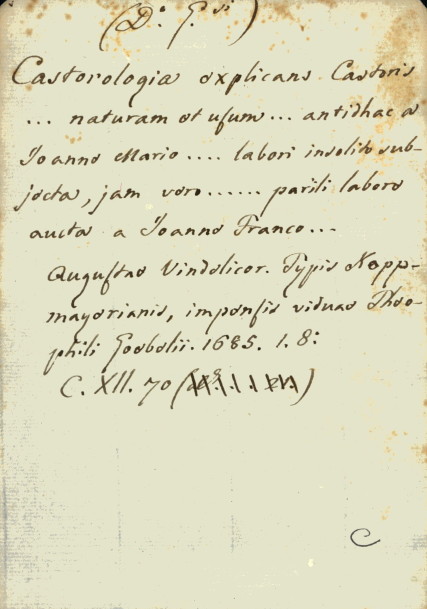 (D.° G.si)
Castorologia explicans Castoris
... naturam et usum ... antidhac a
Joanne Mario .... labori insolito sub-
jecta, jam vero ...... parili labore
aucta a Joanne Franco ...
Augustae Vindelicor. Typis Kopp-
mayerianis, impensis viduae Theo-
phili Goebelii. 1685. 1. 8:
C. XII. 70 ( )
C